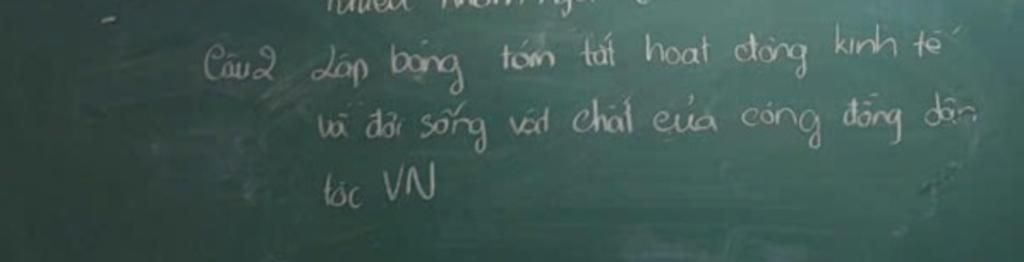 Câu2 Lập bảng tóm tắt hoạt động kinh tế
và đời sống vật chất của cộng đồng dân
tộc VN